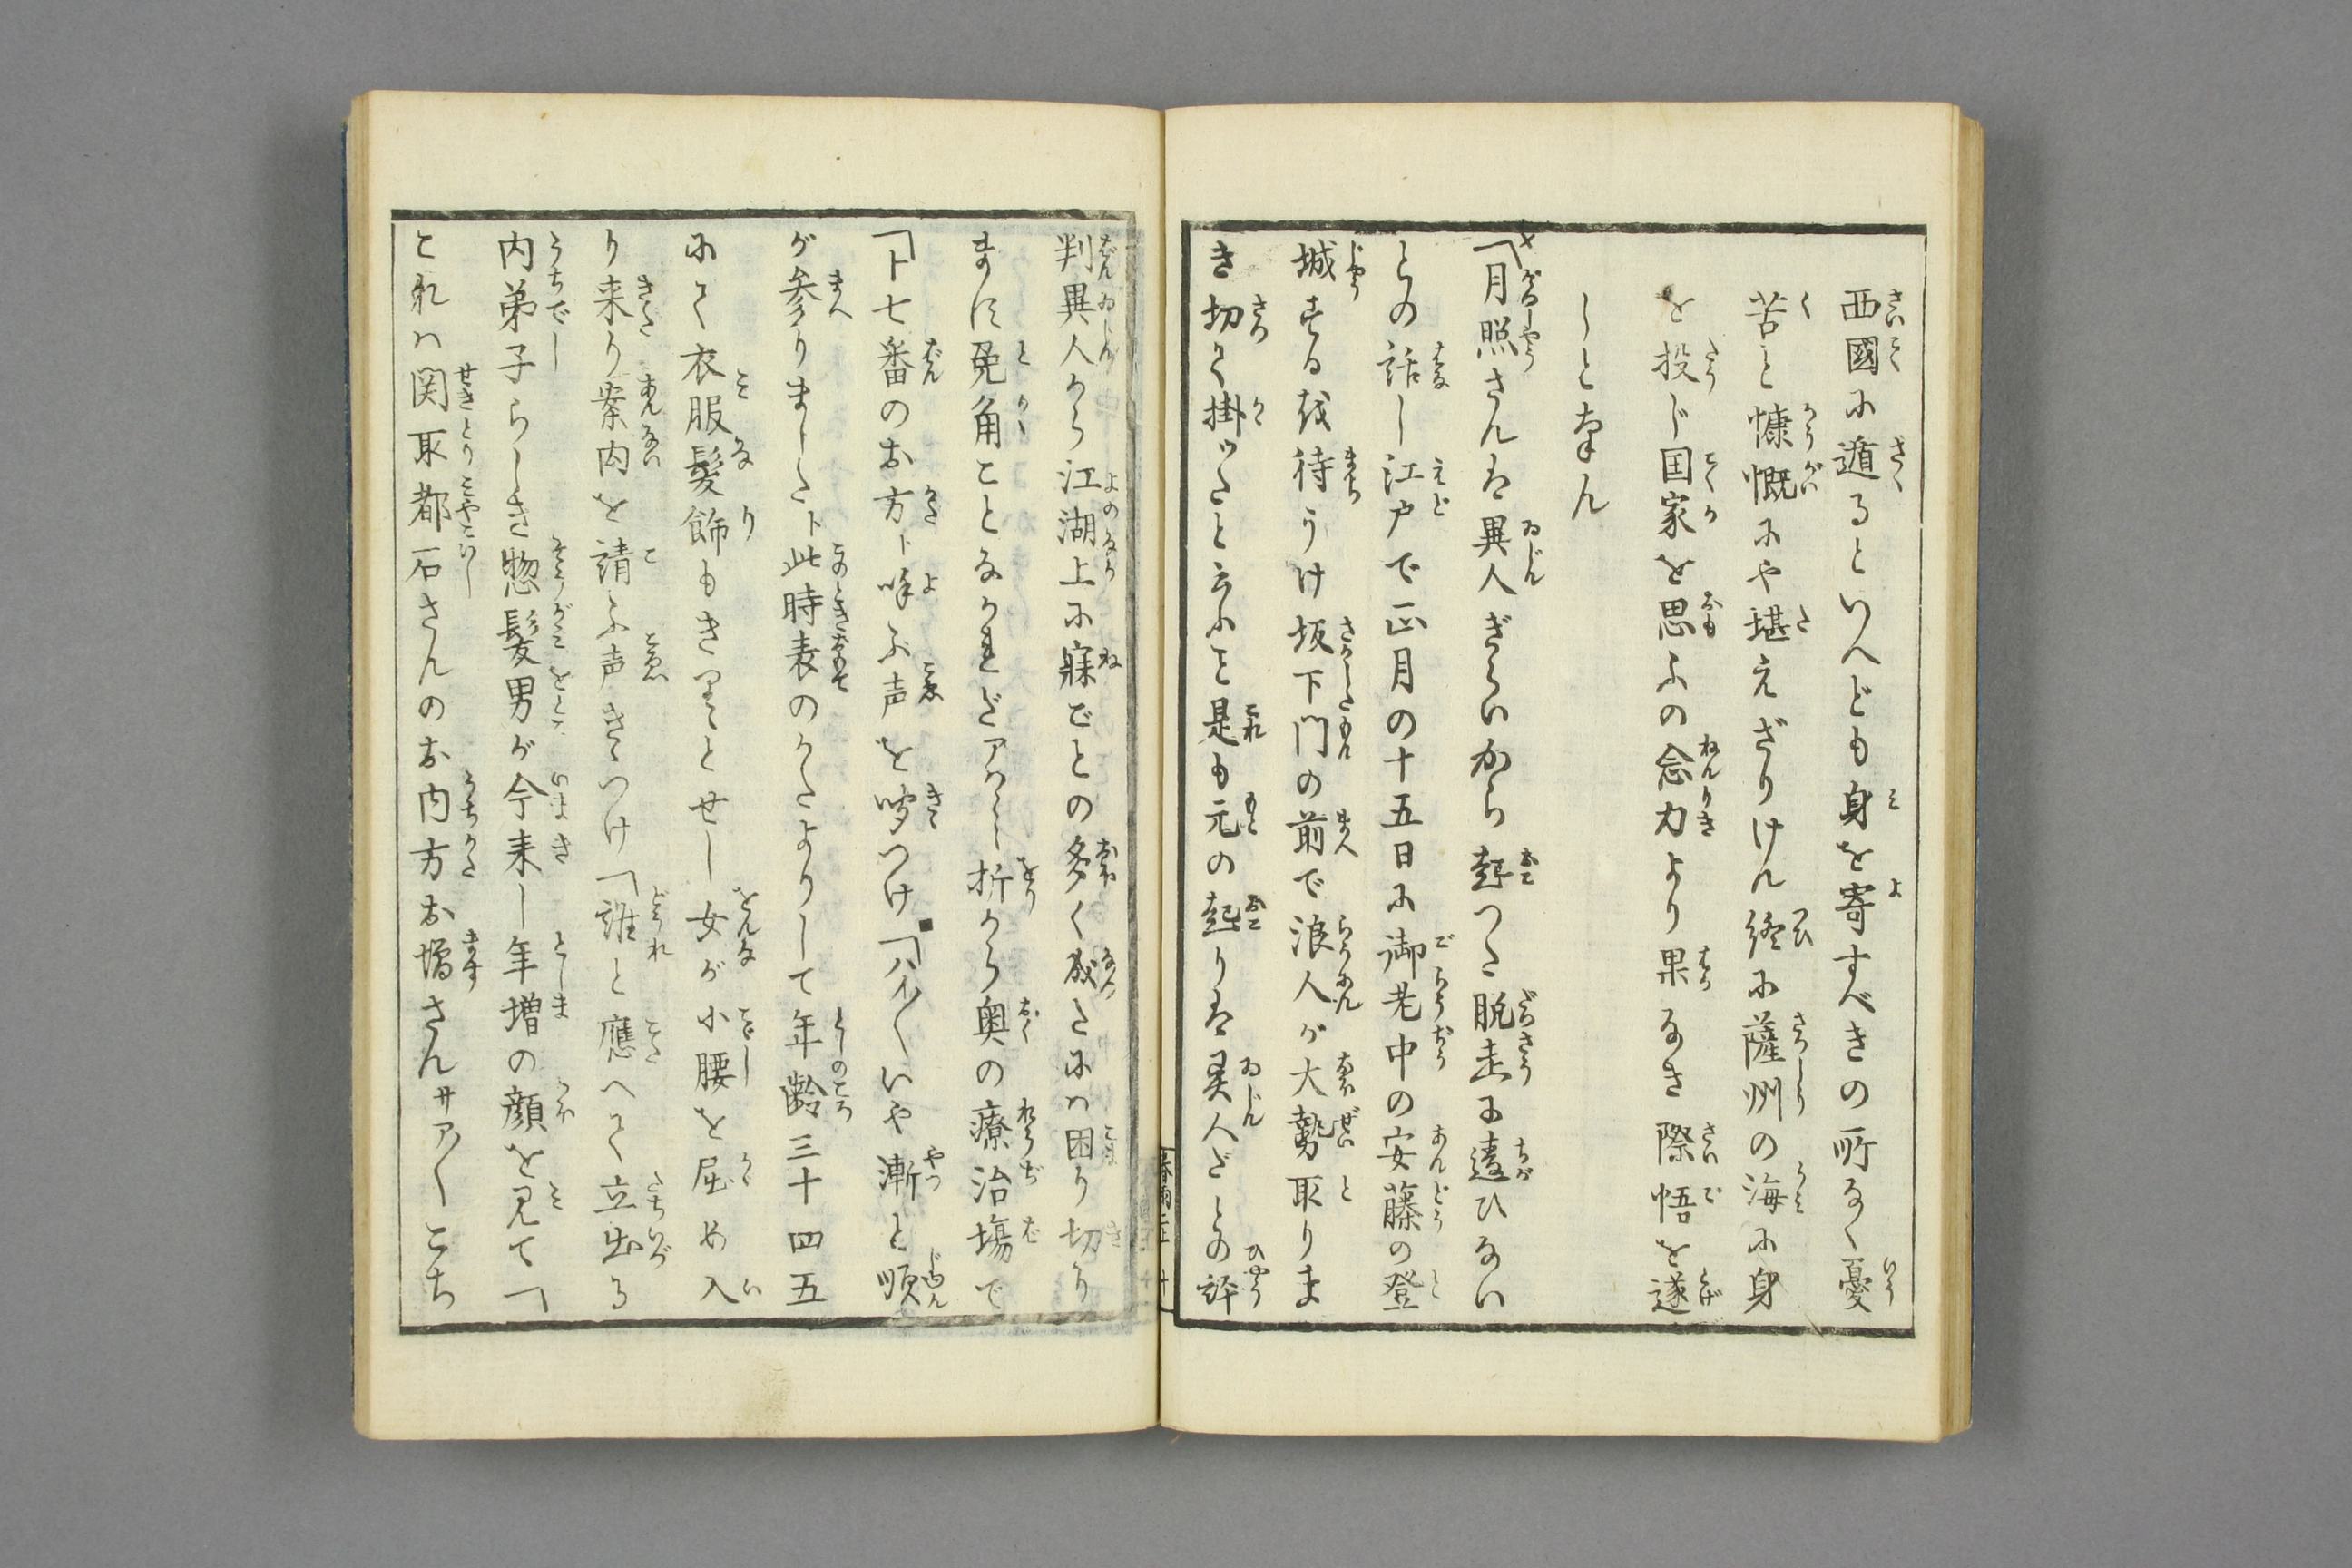 西國に遁るといへども身を寄すべきの所なく憂
苦と慷慨にや堪えざりけん終に薩州の海に身
を投じ国家を思ふの念力より果なき際悟を遂
しとなん
「月照さんは異人ぎらいから起つた脱走に違ひない
との話し江戸で正月の十五日に御老中の安藤の登
城する所を待うけ坂下門の前で浪人が大勢取りま
き切て掛ッたと云ふこと是も元の起りは異人だとの評
判異人から江湖上に寐ごとの多く成たには困り切り
ますに兎角ことなかれだアハヽヽ折から奥の療治場で
「ト七番のお方ト呼ぶ声を聞つけ「ハイ〳〵いや漸と順
が参りましたト此時表のかたよりして年齢三十四五
にて衣服髪飾もきりヽとせし女が小腰を屈め入
り来り案内を請ふ声きヽつけ「誰と應へて立出る
内弟子らしき惣髪男が今来し年増の顔を見て「
これハ関取都石さんのお内方お増さんサア〳〵こち